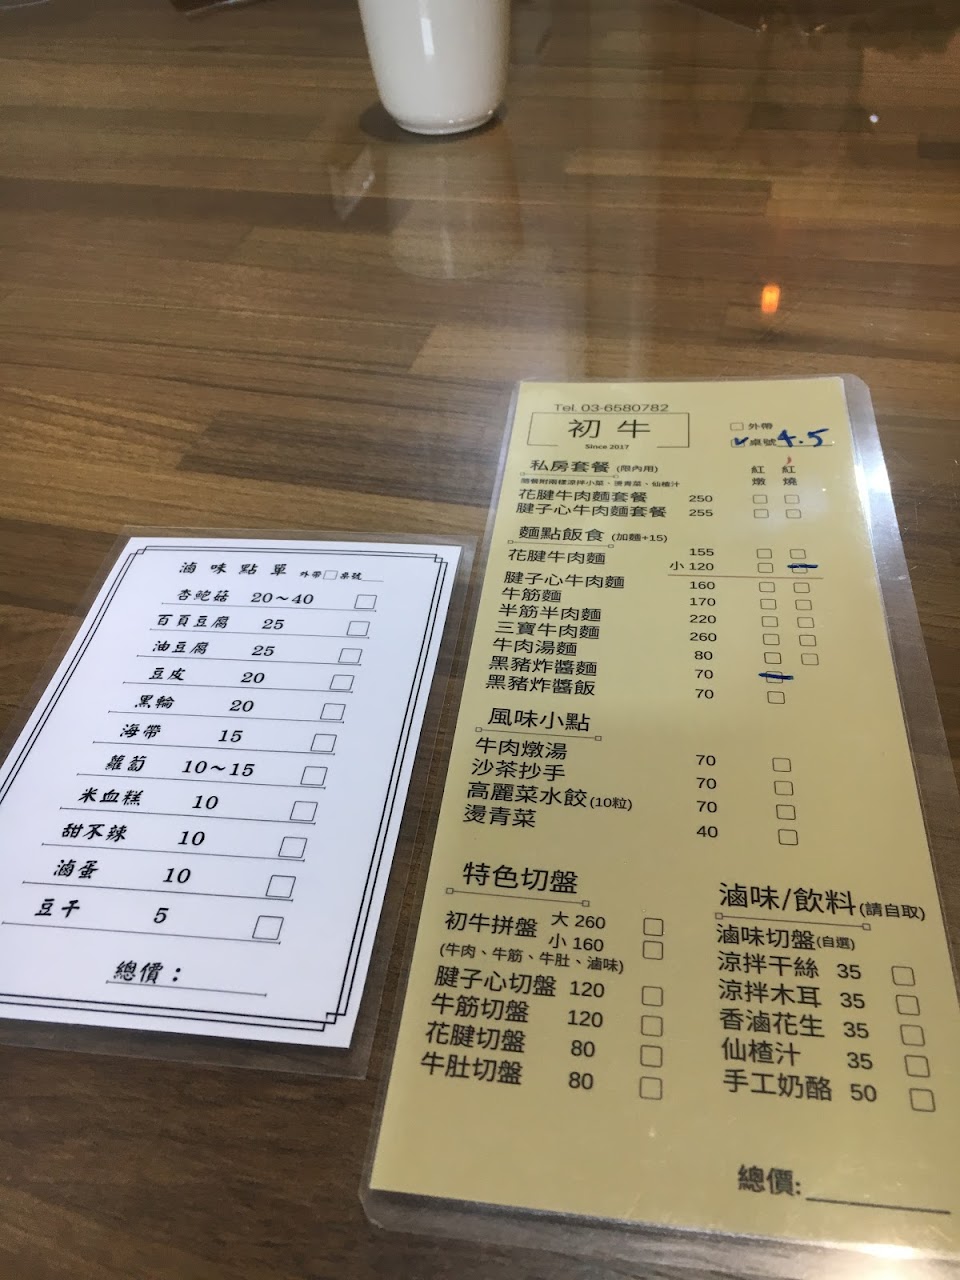 滷味點單 外帶 桌號
杏鮑菇 20～40
百頁豆腐 25
油豆腐 25
豆皮 20
黑輪 20
海帶 15
蘿蔔 10～15
米血糕 10
甜不辣 10
滷蛋 10
豆干 5
總價：
Tel. 03-6580782
初牛
Since 2017
外帶
桌號 4.5
私房套餐 (限內用)
紅燉 紅燒
隨餐附兩樣涼拌小菜、燙青菜、仙楂汁
花腱牛肉麵套餐 250
腱子心牛肉麵套餐 255
麵點飯食 (加麵+15)
花腱牛肉麵 155
小 120
腱子心牛肉麵 160
牛筋麵 170
半筋半肉麵 220
三寶牛肉麵 260
牛肉湯麵 80
黑豬炸醬麵 70
黑豬炸醬飯 70
風味小點
牛肉燉湯 70
沙茶抄手 70
高麗菜水餃(10粒) 70
燙青菜 40
特色切盤
初牛拼盤 大 260
小 160
(牛肉、牛筋、牛肚、滷味)
腱子心切盤 120
牛筋切盤 120
花腱切盤 80
牛肚切盤 80
滷味/飲料(請自取)
滷味切盤(自選)
涼拌干絲 35
涼拌木耳 35
香滷花生 35
仙楂汁 35
手工奶酪 50
總價: